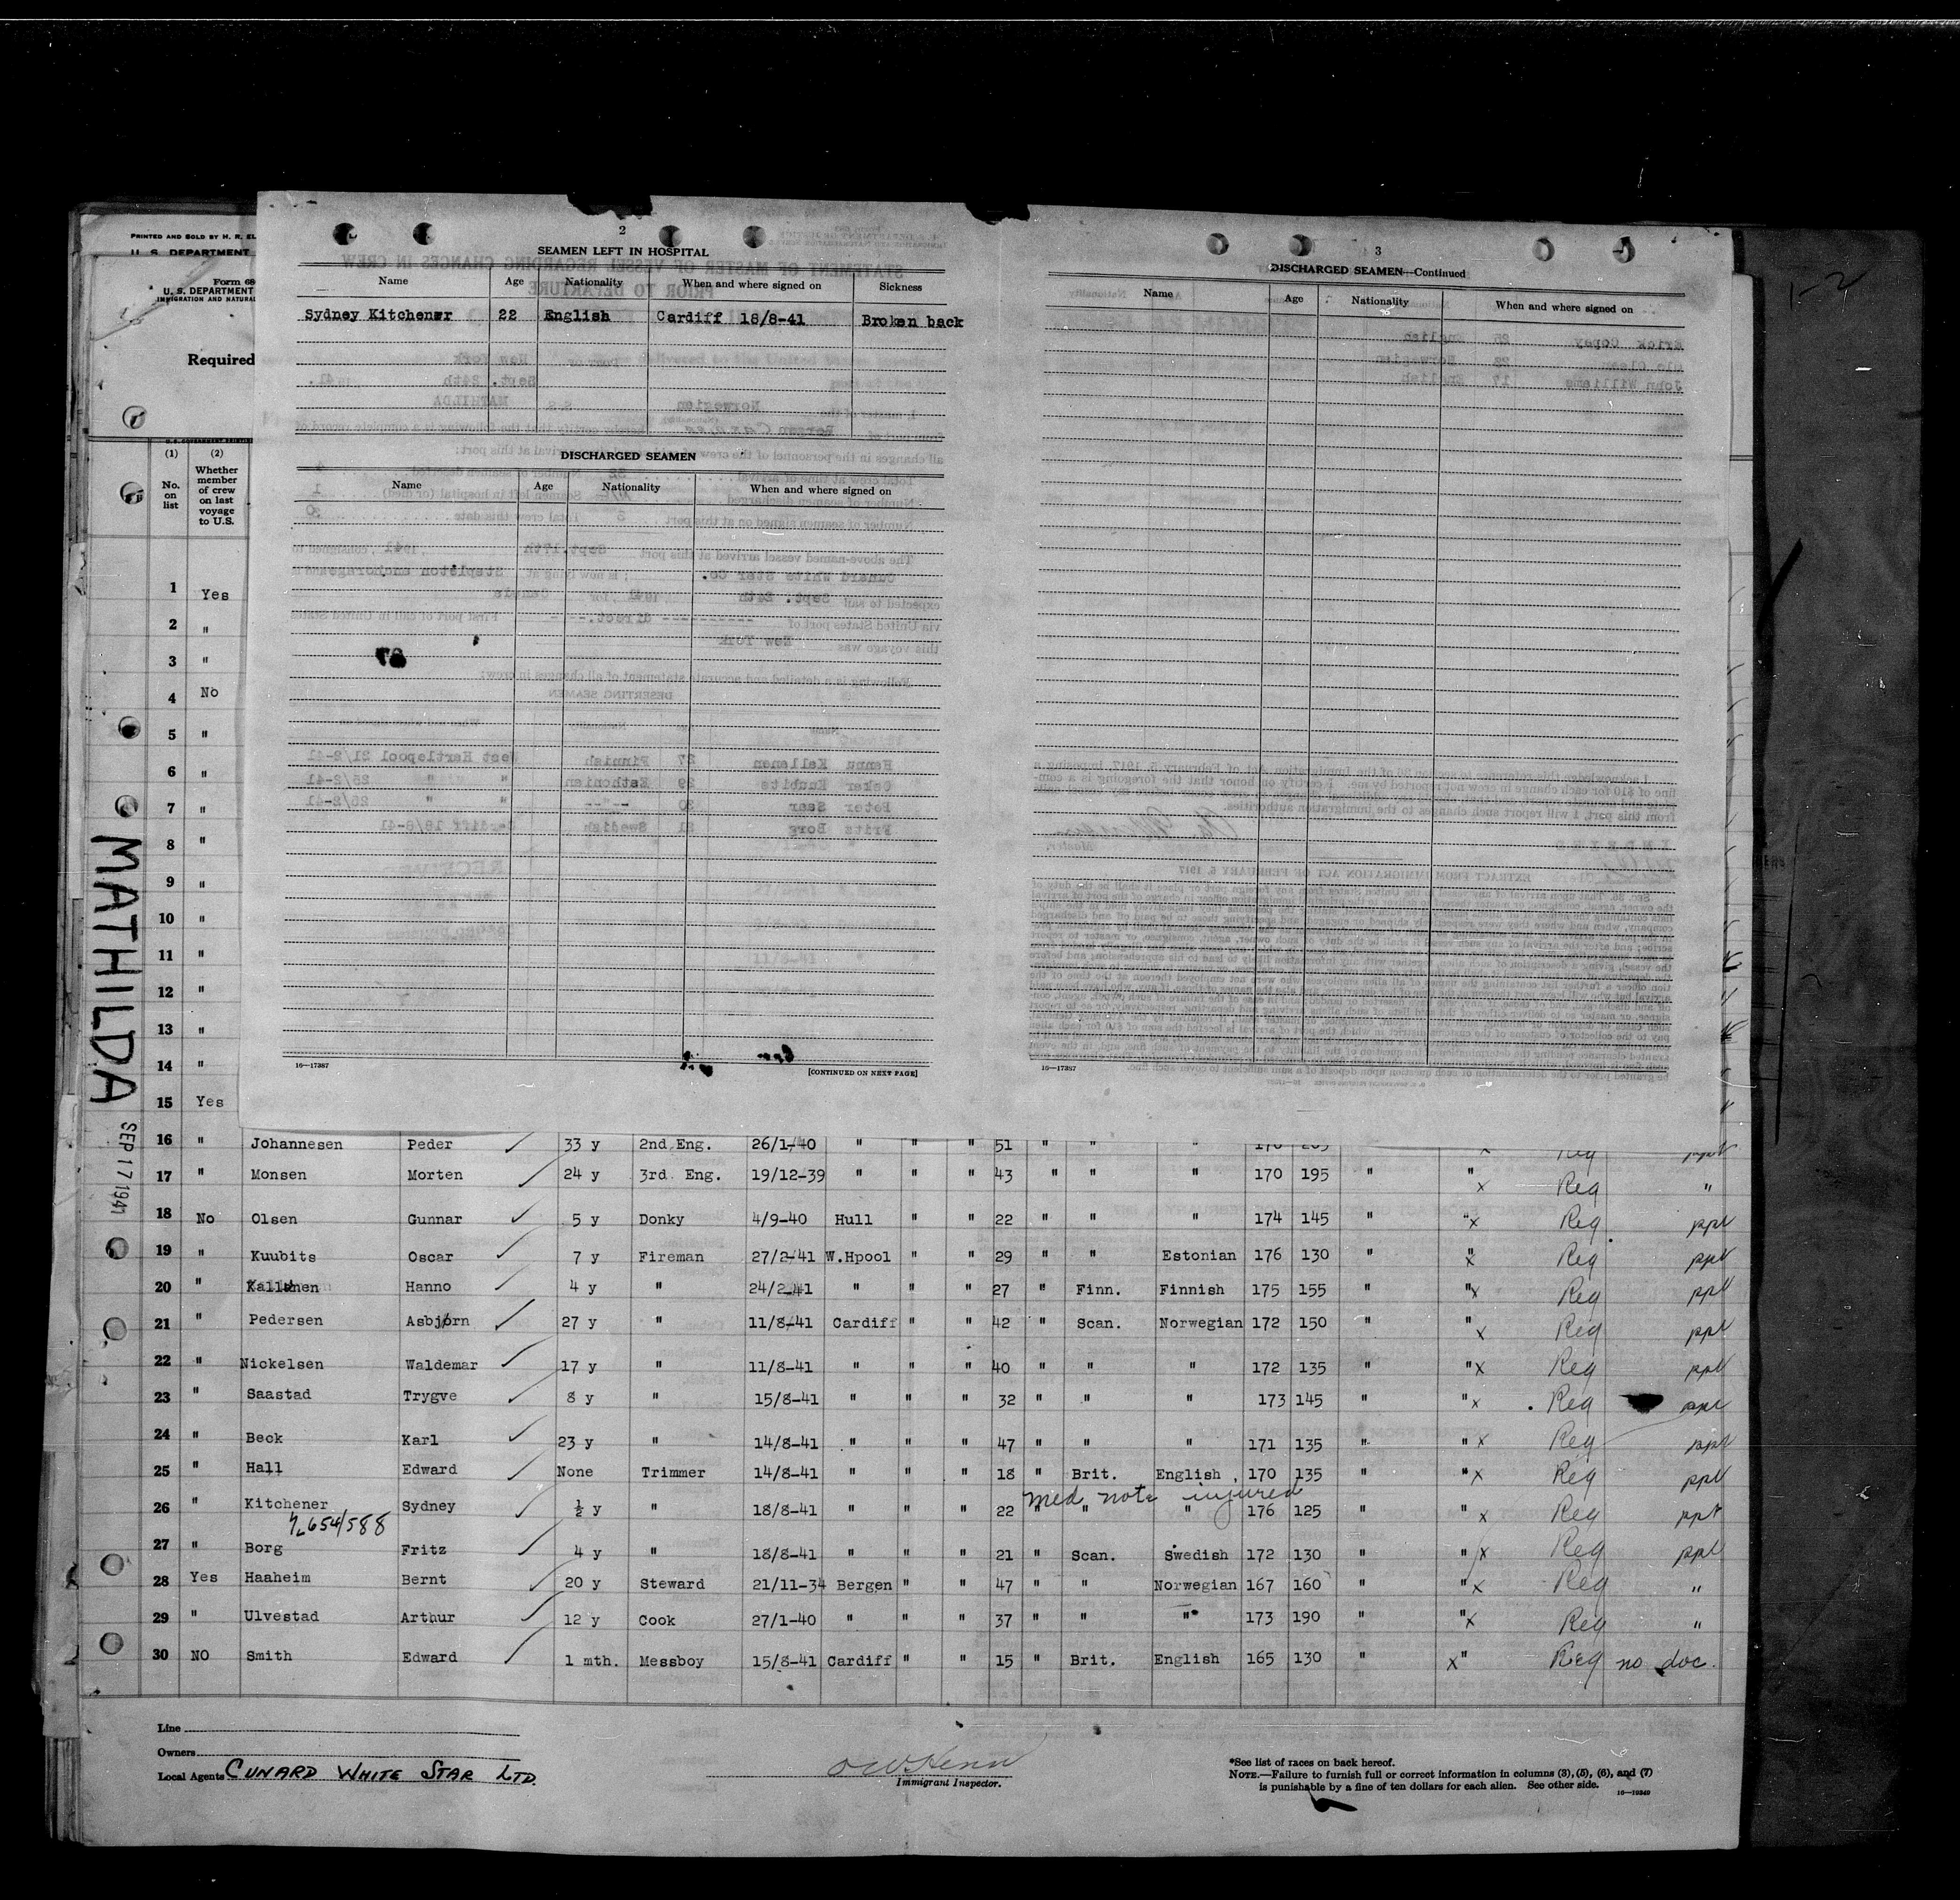 1-2
PRINTED AND SOLD BY H. R. EL
U. S. DEPARTMENT
Form 68
U. S. DEPARTMENT
IMMIGRATION AND NATURAL
Required
2
SEAMEN LEFT IN HOSPITAL
Name Age Nationality When and where signed on Sickness
Sydney Kitchener 22 English Cardiff 18/8-41 Broken back
DISCHARGED SEAMEN
Name Age Nationality When and where signed on
16—17387
[CONTINUED ON NEXT PAGE]
3
DISCHARGED SEAMEN—Continued
Name Age Nationality When and where signed on
16—17387
(1) (2)
No. on list
Whether member of crew on last voyage to U.S.
1 Yes
2 "
3 "
4 No
5 "
6 "
7 "
8 "
9 "
10 "
11 "
12 "
13 "
14 "
15 Yes
MATHILDA
SEP 17 1941
16 " Johannesen Peder 33 y 2nd Eng. 26/1-40 " " " 51 " " "
17 " Monsen Morten 24 y 3rd Eng. 19/12-39 " " " 43 " " " 170 195 " " x Reg "
18 No Olsen Gunnar 5 y Donky 4/9-40 Hull " " 22 " " " 174 145 " "x Reg ppt
19 " Kuubits Oscar 7 y Fireman 27/2-41 W.Hpool " " 29 " " Estonian 176 130 " " x Reg ppt
20 " Hanno 4 y " 24/2-41 " " " 27 " Finn. Finnish 175 155 " "x Reg ppt
21 " Pedersen Asbjørn 27 y " 11/8-41 Cardiff " " 42 " Scan. Norwegian 172 150 " " x Reg ppt
22 " Nickelsen Waldemar 17 y " 11/8-41 " " " 40 " " " 172 135 " "x Reg ppt
23 " Saastad Trygve 8 y " 15/8-41 " " " 32 " " " 173 145 " "x Reg ppt
24 " Beck Karl 23 y " 14/8-41 " " " 47 " " " 171 135 " " x Reg ppt
25 " Hall Edward None Trimmer 14/8-41 " " " 18 " Brit. English 170 135 " "x Reg ppt
med note injured
26 " Kitchener Sydney ½ y " 18/8-41 " " " 22 " " " 176 125 " " x Reg ppt
654/588
27 " Borg Fritz 4 y " 18/8-41 " " " 21 " Scan. Swedish 172 130 " " x Reg ppt
28 Yes Haaheim Bernt 20 y Steward 21/11-34 Bergen " " 47 " " Norwegian 167 160 " "x Reg "
29 " Ulvestad Arthur 12 y Cook 27/1-40 " " " 37 " " " 173 190 " "x Reg "
30 NO Smith Edward 1 mth. Messboy 15/8-41 Cardiff " " 15 " Brit. English 165 130 " x" Reg no doc.
Line
Owners
Local Agents CUNARD WHITE STAR LTD.
Immigrant Inspector.
*See list of races on back hereof.
NOTE.—Failure to furnish full or correct information in columns (3), (5), (6), and (7)
is punishable by a fine of ten dollars for each alien. See other side.
16—19340